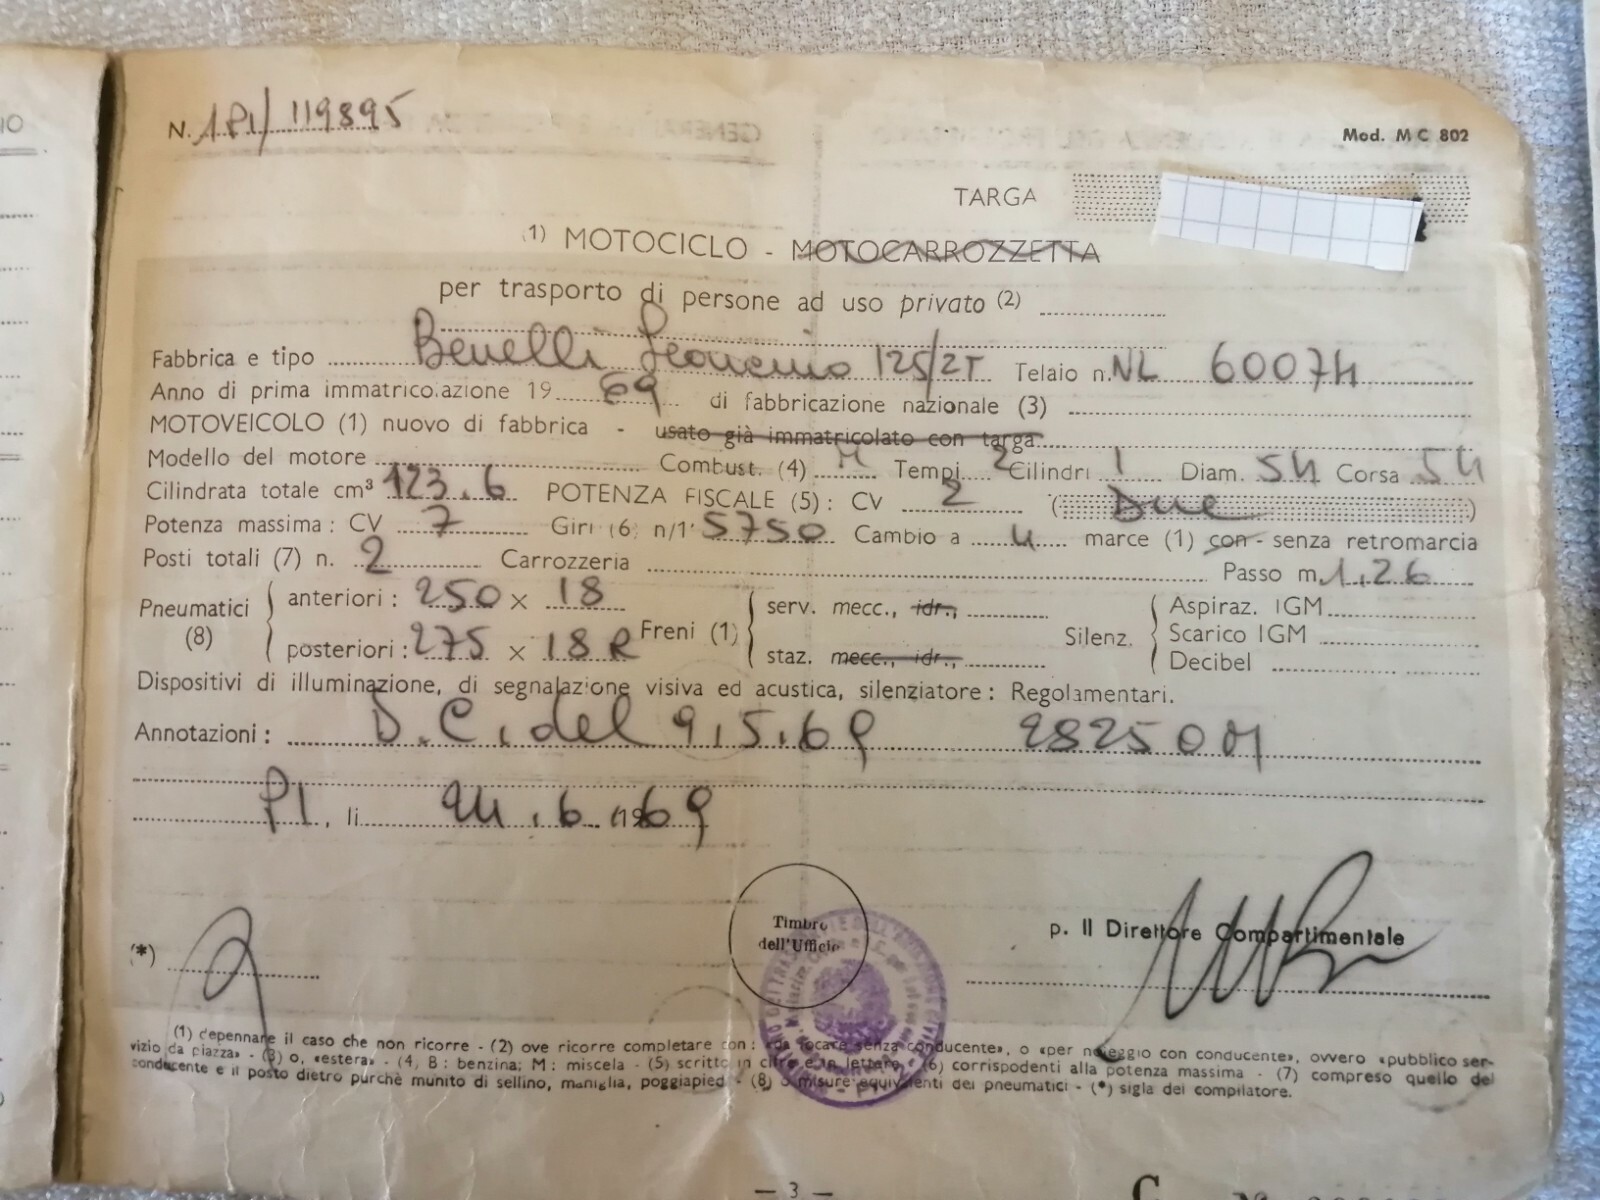 IO
N. 1PI/ 119895
Mod. M C 802
TARGA
(1) MOTOCICLO - MOTOCARROZZETTA
per trasporto di persone ad uso privato (2)
Fabbrica e tipo Benelli Leoncino 125/2T Telaio n. NL 60074
Anno di prima immatricolazione 19 69 di fabbricazione nazionale (3)
MOTOVEICOLO (1) nuovo di fabbrica - usato già immatricolato con targa
Modello del motore Combust. (4) M Tempi 2 Cilindri 1 Diam. 54 Corsa 54
Cilindrata totale cm³ 123.6 POTENZA FISCALE (5): CV 2 (Due)
Potenza massima: CV 7 Giri (6) n/1' 5750 Cambio a 4 marce (1) con - senza retromarcia
Posti totali (7) n. 2 Carrozzeria Passo m. 1,26
Pneumatici (8) anteriori: 250 x 18 Freni (1) serv. mecc., idr., Silenz. Aspiraz. IGM
Scarico IGM
posteriori: 275 x 18 R staz. mecc., idr., Decibel
Dispositivi di illuminazione, di segnalazione visiva ed acustica, silenziatore: Regolamentari.
Annotazioni: D.C. del 9.5.69 28250 OM
PI, li 24.6.1969
Timbro
dell'Ufficio
p. Il Direttore Compartimentale
(*)
(1) depennare il caso che non ricorre - (2) ove ricorre completare con: «da locare senza conducente», o «per noleggio con conducente», ovvero «pubblico ser-
vizio da piazza» - (3) o, «estera» - (4, B: benzina; M: miscela - (5) scritto in cifre e in lettere - (6) corrispondenti alla potenza massima - (7) compreso quello del
conducente e il posto dietro purchè munito di sellino, maniglia, poggiapied - (8) o misure equivalenti dei pneumatici - (*) sigla del compilatore.
— 3 —
C